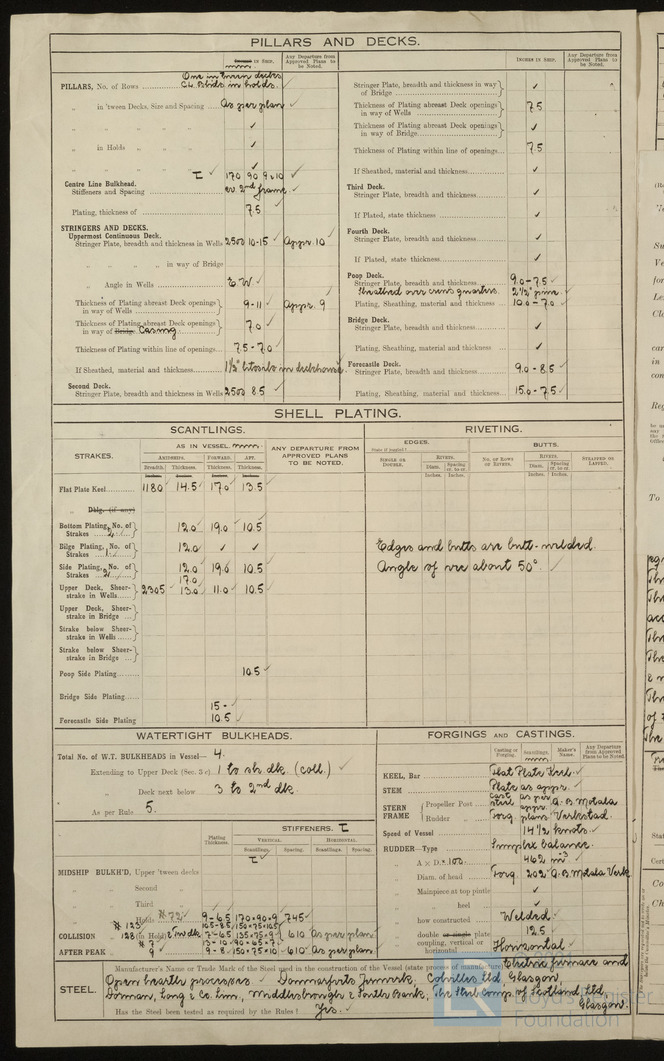 PILLARS AND DECKS.
Inches in Ship. mm.
Any Departure from Approved Plans to be Noted.
PILLARS, No. of Rows One in tween decks
C.L. Blhds in holds.
„ in 'tween Decks, Size and Spacing As per plan ✓
„ „ „ „ ✓
„ in Holds „ „ ✓
„ „ „ „ ✓
Centre Line Bulkhead. 170 90 9 × 10 ✓
Stiffeners and Spacing ev 2nd frame ✓
Plating, thickness of 7.5
STRINGERS AND DECKS.
Uppermost Continuous Deck.
Stringer Plate, breadth and thickness in Wells 2500 10-15 ✓ Appr. 10 ✓
„ „ „ in way of Bridge
„ Angle in Wells E.W ✓
Thickness of Plating abreast Deck openings in way of Wells 9-11 ✓ Appr. 9
Thickness of Plating abreast Deck openings in way of Bridge Casing 7.0 ✓
Thickness of Plating within line of openings 7.5 - 7.0
If Sheathed, material and thickness 1½" litosilo in deckhouse
Second Deck.
Stringer Plate, breadth and thickness in Wells 2500 8.5 ✓
Inches in Ship.
Any Departure from Approved Plans to be Noted.
Stringer Plate, breadth and thickness in way of Bridge ✓
Thickness of Plating abreast Deck openings in way of Wells 7.5
Thickness of Plating abreast Deck openings in way of Bridge ✓
Thickness of Plating within line of openings 7.5
If Sheathed, material and thickness ✓
Third Deck.
Stringer Plate, breadth and thickness ✓
If Plated, state thickness ✓
Fourth Deck.
Stringer Plate, breadth and thickness ✓
If Plated, state thickness ✓
Poop Deck.
Stringer Plate, breadth and thickness 9.0 - 7.5 ✓
Sheathed over crews quarters. 2½" pine.
Plating, Sheathing, material and thickness 10.0 - 7.0 ✓
Bridge Deck.
Stringer Plate, breadth and thickness ✓
Plating, Sheathing, material and thickness ✓
Forecastle Deck.
Stringer Plate, breadth and thickness 9.0 - 8.5 ✓
Plating, Sheathing, material and thickness 15.0 - 7.5 ✓
SHELL PLATING.
SCANTLINGS.
RIVETING.
STRAKES.
AS IN VESSEL. mm.
Amidships. Forward. Aft.
Breadth. Thickness. Thickness. Thickness.
ANY DEPARTURE FROM APPROVED PLANS TO BE NOTED.
EDGES.
BUTTS.
Single or Double.
Rivets.
Diam. Spacing cr. to cr.
No. of Rows of Rivets.
Rivets.
Diam. Spacing cr. to cr.
Strapped or Lapped.
Inches. Inches. Inches. Inches.
Flat Plate Keel 1180 ✓ 14.5 ✓ 17.0 ✓ 13.5
„ Dblg. (if any)
Bottom Plating, No. of Strakes 2 12.0 ✓ 19.0 ✓ 10.5
Bilge Plating, No. of Strakes 1 12.0 ✓ ✓ ✓
Edges and butts are butt-welded.
Side Plating, No. of Strakes 2 12.0 ✓ 19.0 10.5
Angle of vee about 50°. ✓
Upper Deck, Sheerstrake in Wells 2305 ✓ 17.0 13.0 ✓ 11.0 10.5
Upper Deck, Sheerstrake in Bridge
Strake below Sheerstrake in Wells
Strake below Sheerstrake in Bridge
Poop Side Plating 10.5 ✓
Bridge Side Plating
Forecastle Side Plating 15 - 10.5 ✓
WATERTIGHT BULKHEADS.
Total No. of W.T. BULKHEADS in Vessel— 4.
Extending to Upper Deck (Sec. 3 c) 1 to sh. dk. (coll.) ✓
„ Deck next below 3 to 2nd dk.
As per Rule 5.
STIFFENERS.
Plating Thickness.
VERTICAL. HORIZONTAL.
Scantlings. Spacing. Scantlings. Spacing.
MIDSHIP BULKH'D, Upper 'tween decks
„ „ Second
„ „ Third
„ „ Holds # 72 9 - 6.5 170×90×9 745 ✓
COLLISION „ (in Hold) Tw dk 7-6.5 135×75×9 610 As per plan
AFTER PEAK „ 9 - 8 150×75×10 610 As per plan
FORGINGS AND CASTINGS.
Casting or Forging.
Scantlings. mm
Maker's Name.
Any Departure from Approved Plans to be Noted
KEEL, Bar Flat Plate Keel. ✓
STEM Plate as appr. ✓
STERN FRAME
Propeller Post Cast steel as per appr. A.B. Motala
Rudder „ Forg. plans Verkstad.
Speed of Vessel 14½ knots. ✓
RUDDER—Type Simplex balance.
„ A × D 462 m³ ✓
„ Diam. of head Forg. 202 A.B. Motala Verk
„ Mainpiece at top pintle ✓
„ „ heel ✓
„ how constructed Welded. ✓
„ double or single plate 12.5
„ coupling, vertical or horizontal Horizontal ✓
STEEL.
Manufacturer's Name or Trade Mark of the Steel used in the construction of the Vessel (state process of manufacture) Electric furnace and
Open hearth processes. ✓ Domnarfvets Jernverk, Colvilles Ltd, Glasgow
Dorman, Long & Co. Lim., Middlesbrough & South Bank, The Steel Comp. of Scotland Ltd,
Glasgow.
Has the Steel been tested as required by the Rules? Yes. ✓
Lloyd's Register
Foundation